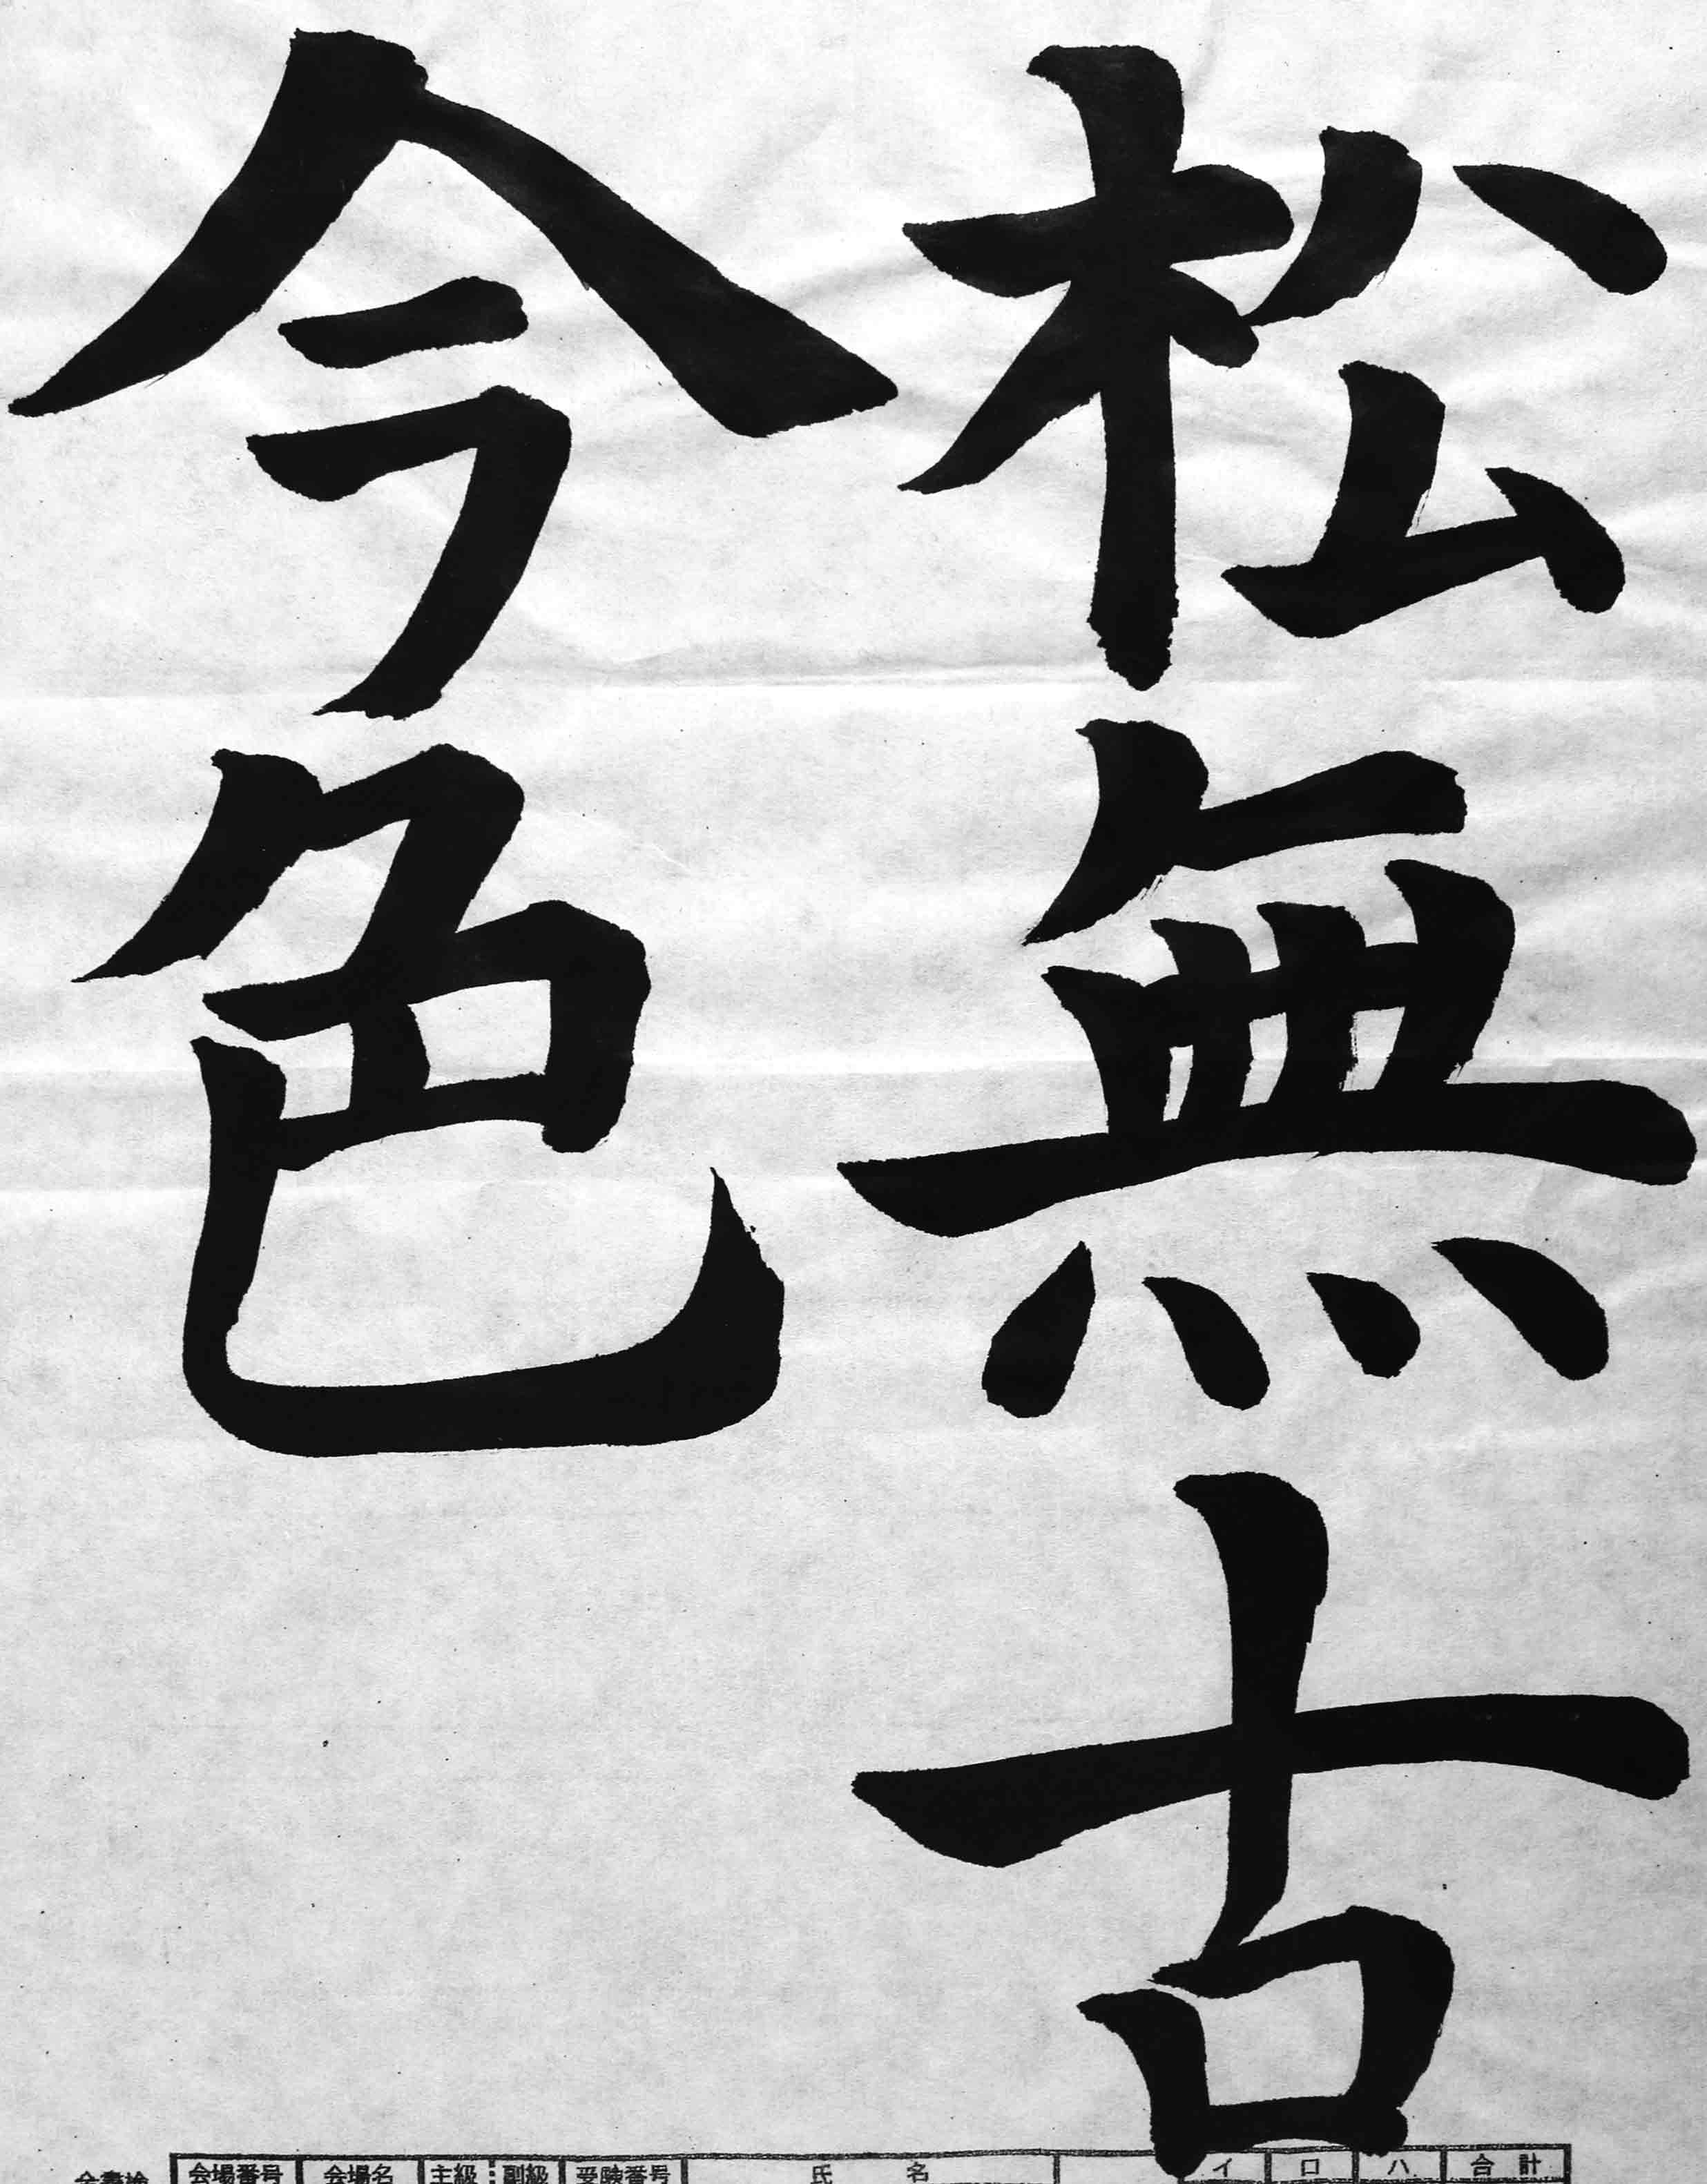 松無古
今色
会場番号 会場名 主級 副級 受験番号 氏名 イ ロ ハ 合計